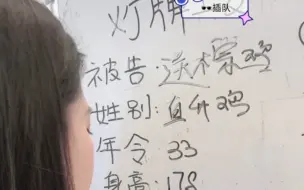 插队
灯牌
被告:送棕鸡
姓别:自升鸡
年令:33
身高:178